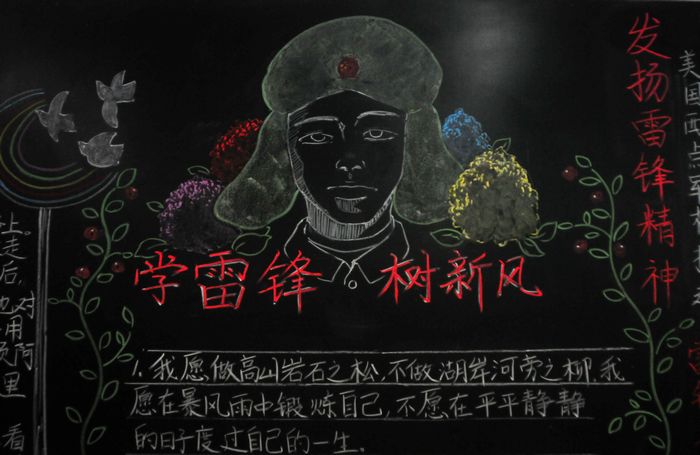 学雷锋 树新风
1、我愿做高山岩石之松,不做湖岸河旁之柳.我
愿在暴风雨中锻炼自己,不愿在平平静静
的日子度过自己的一生.
发扬雷锋精神
美国西点军校
上。
走后,
也对
用
阿
里
看